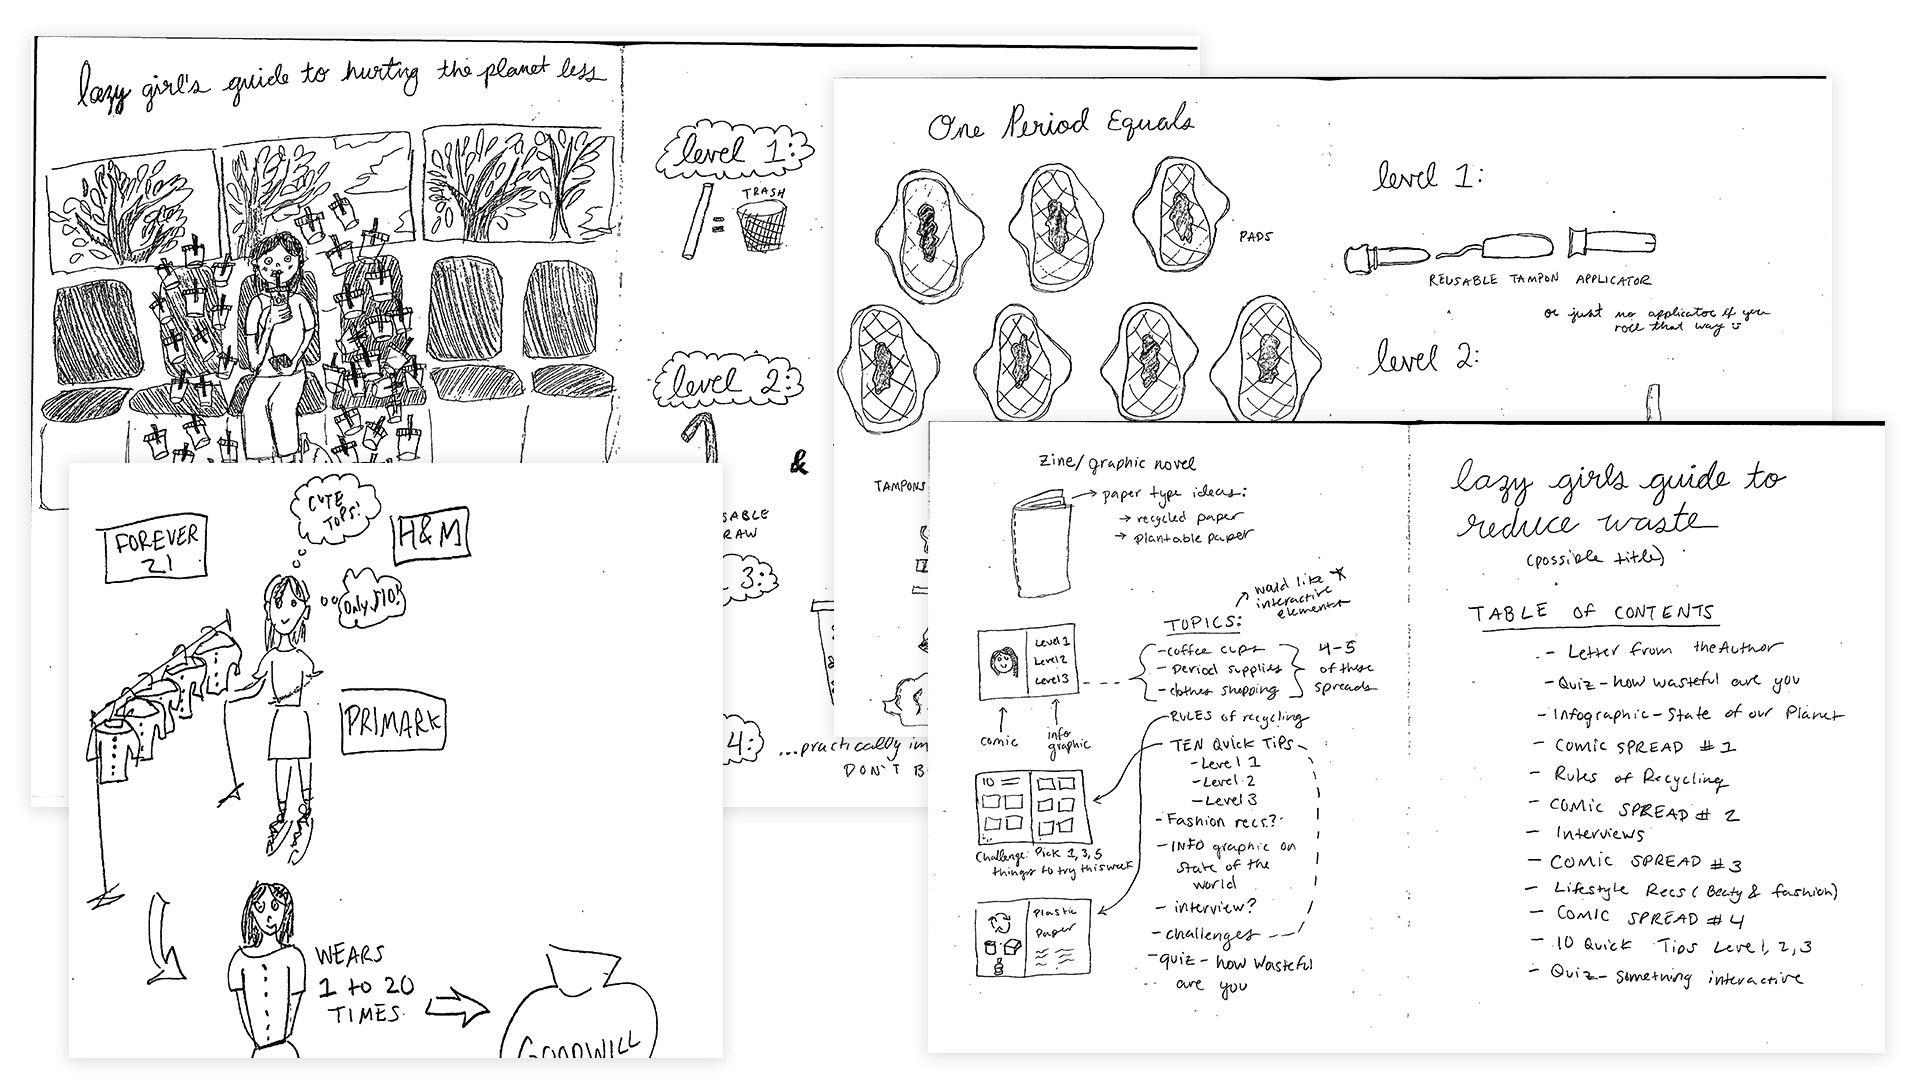 lazy girl's guide to hurting the planet less
level 1:
TRASH
=
level 2:
&
SABLE
RAW
3:
4:
...practically im
DON'T B
One Period Equals
PADS
TAMPONS
level 1:
REUSABLE TAMPON APPLICATOR
or just no applicator if you
roll that way
level 2:
FOREVER
21
CUTE
TOPS!
H&M
Only $10!
PRIMARK
WEARS
1 to 20
TIMES
GOODWILL
zine/graphic novel
→ paper type ideas:
→ recycled paper
→ plantable paper
would like
interactive
elements
TOPICS:
-coffee cups
- Period supplies
- clothes shopping
4-5
of these
spreads
Level 1
Level 2
Level 3
comic
info
graphic
-RULES of recycling
- TEN Quick TIPS
-Level 1
-Level 2
-Level 3
-Fashion recs.?
-INFO graphic on
State of the
world
- interview?
- challenges
-quiz - how wasteful
are you
10
Challenge: Pick 1, 3, 5
things to try this week
Plastic
Paper
lazy girls guide to
reduce waste
(possible title)
TABLE OF CONTENTS
- Letter from the Author
-Quiz-how wasteful are you
-Infographic-State of our Planet
- COMIC SPREAD #1
- Rules of Recycling
- COMIC SPREAD # 2
- Interviews
- COMIC SPREAD #3
- Lifestyle Recs (Beaty & fashion)
- COMIC SPREAD #4
- 10 Quick Tips Level 1, 2, 3
- Quiz-something interactive